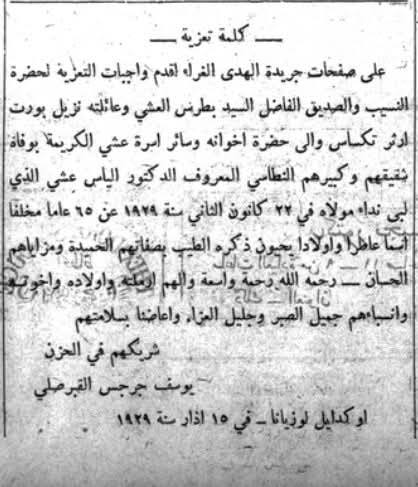 — كلمة تعزية —
على صفحات جريدة الهدى الغراء اقدم واجبات التعزية لحضرة
النسيب والصديق الفاضل السيد بطرس العشي وعائلته نزيل بورت
ارثر تكساس والى حضرة اخوانه وسائر اسرة عشي الكريمة بوفاة
شقيقهم وكبيرهم النطاسي المعروف الدكتور الياس عشي الذي
لبى نداء مولاه في ٢٢ كانون الثاني سنة ١٩٢٩ عن ٦٥ عاما مخلفا
اسما عاطرا واولادا يحيون ذكره الطيب بصفاتهم الحميدة ومزاياهم
الحسان — رحمه الله رحمة واسعة والهم ارملته واولاده واخوته
وانسباءهم جميل الصبر وجليل العزاء واعاضنا بسلامتهم
شريكهم في الحزن
يوسف جرجس القبرصلي
اوكدايل لوزيانا — في ١٥ اذار سنة ١٩٢٩